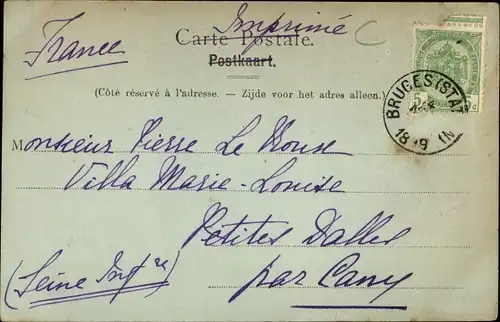 Imprimé
France
Carte Postale.
Postkaart.
(Côté réservé à l'adresse. — Zijde voor het adres alleen.)
BRUGES (STAT
5
Monsieur Pierre Le Roux
Villa Marie-Louise
Petites Dalles
(Seine Infre)
par Cany